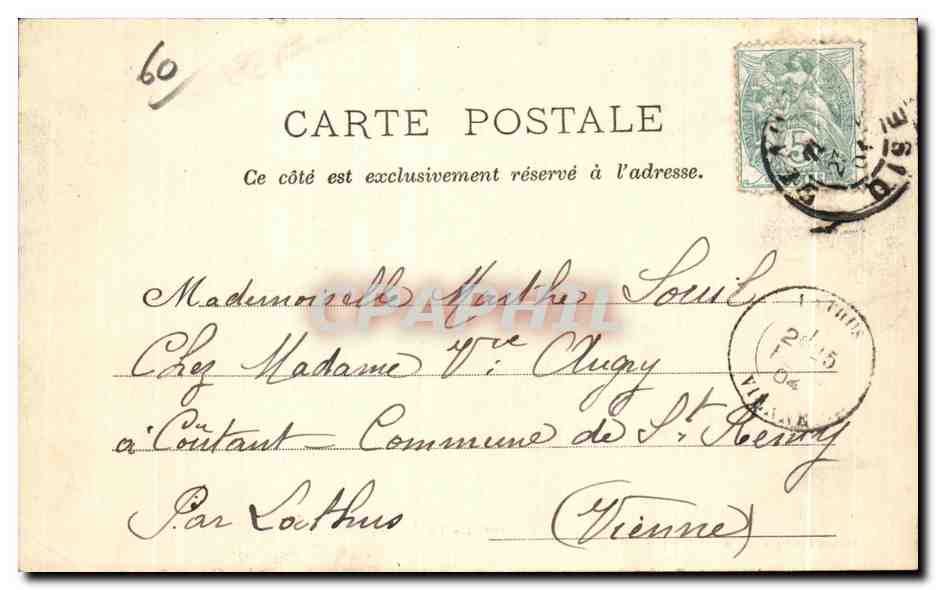 60
CARTE POSTALE
Ce côté est exclusivement réservé à l'adresse.
5
OISE
CPAPHIL
Mademoiselle Marthe Souil
Chez Madame Vve Augry
à Coutant - Commune de St Remy
Par Lathus (Vienne)
LATHUS
04
VIENNE